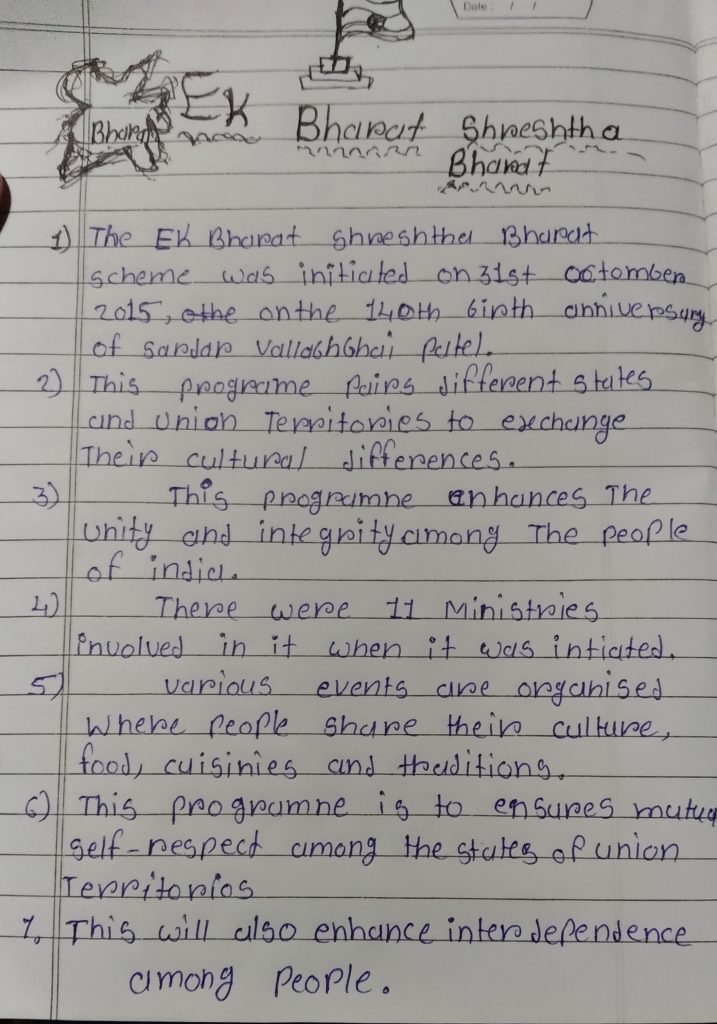 Date: / /
Bharat Ek Bharat Shreshtha
Bharat
1) The Ek Bharat Shreshtha Bharat
scheme was initiated on 31st octomber
2015, othe on the 140th birth anniversary
of sardar vallabhbhai patel.
2) This programe pairs different states
and Union Territories to exchange
Their cultural differences.
3) This programne enhances The
unity and integrity among The people
of india.
4) There were 11 Ministries
involved in it when it was intiated.
5) various events are organised
where people share their culture,
food, cuisinies and traditions.
6) This programne is to ensures mutua
self-respect among the states of union
Territorios
7. This will also enhance interdependence
among people.